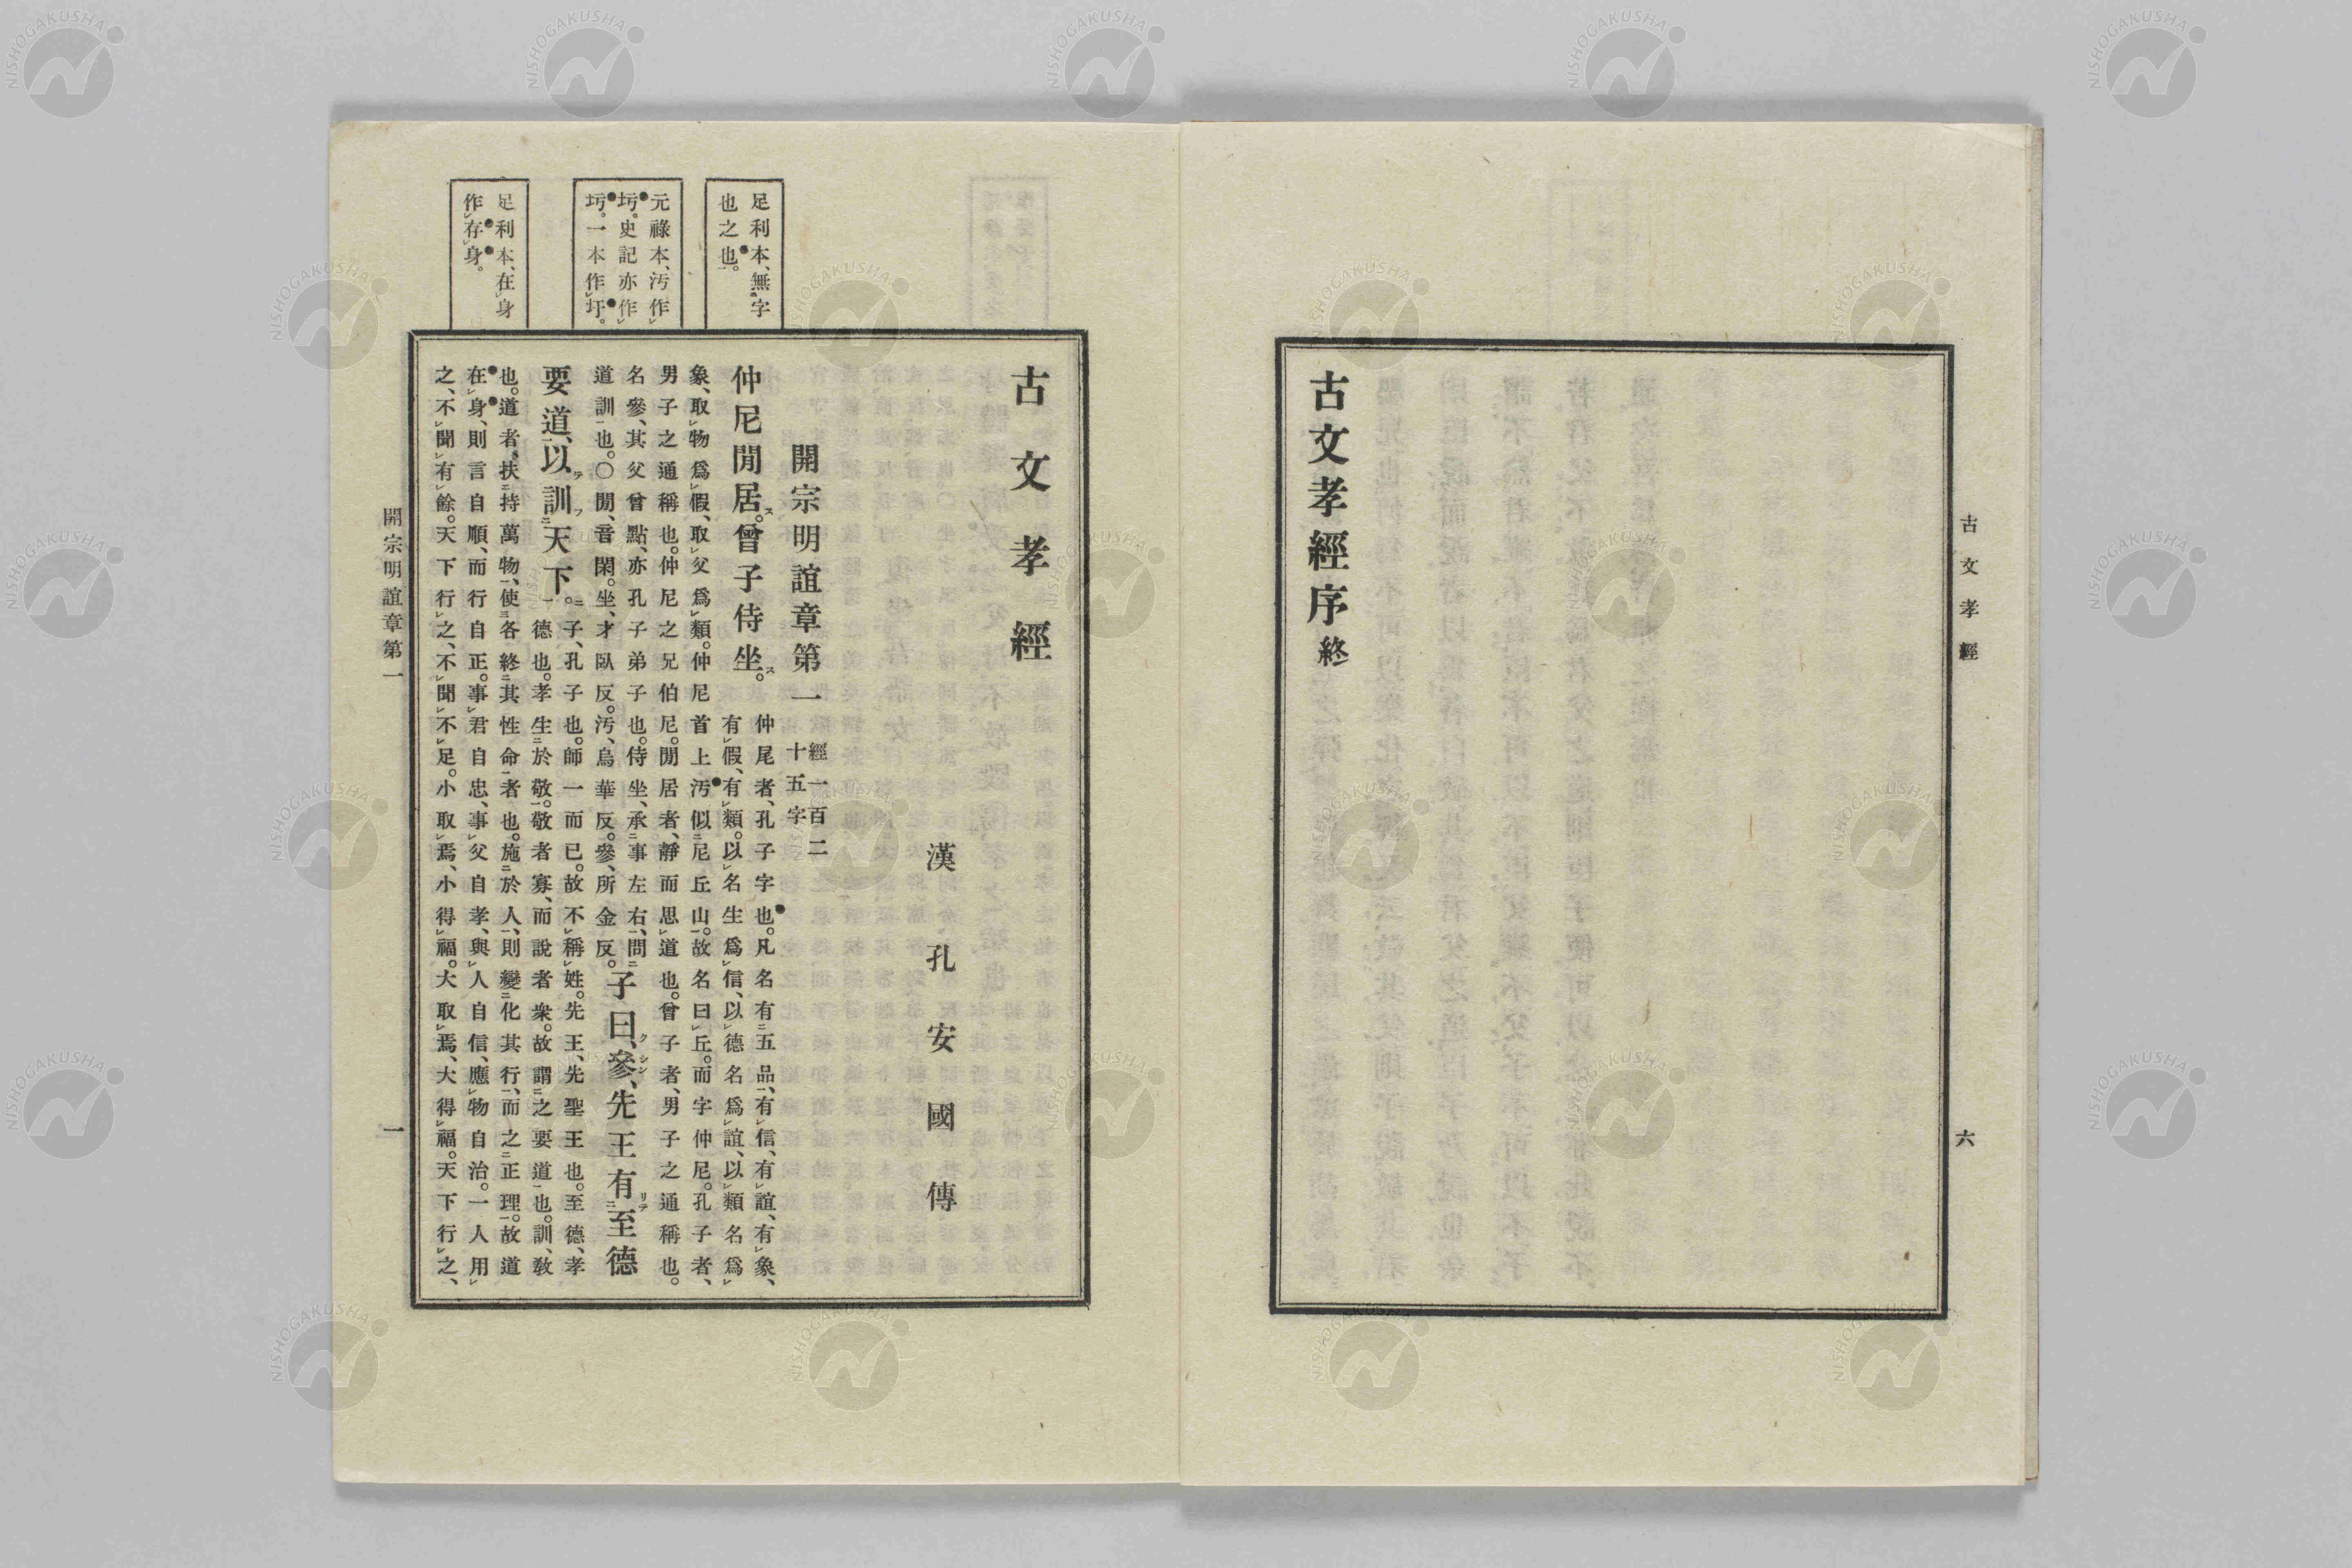 古文孝經
六
古文孝經序終
足利本、無字
也之也。
元祿本、汚作
圬。史記亦作
圬。一本作圩。
足利本、在身
作存身。
古文孝經
漢孔安國傳
開宗明誼章第一
經一百二
十五字
仲尼閒居。曾子侍坐。
仲尾者、孔子字也。凡名有五品、有信、有誼、有象、
有假、有類。以名生爲信、以德名爲誼、以類名爲
象、取物爲假、取父爲類。仲尼首上汚似尼丘山。故名曰丘。而字仲尼。孔子者、
男子之通稱也。仲尼之兄伯尼。閒居者、靜而思道也。曾子者、男子之通稱也。
名參、其父曾點、亦孔子弟子也。侍坐、承事左右、問
道訓也。〇閒、音閑。坐、才臥反。汚、烏華反。參、所金反。
子曰、參、先王有至德
要道、以訓天下。
子、孔子也。師一而已。故不稱姓。先王、先聖王也。至德、孝
德也。孝生於敬。敬者寡、而說者衆。故謂之要道也。訓、敎
也。道者扶持萬物、使各終其性命者也。施於人、則變化其行、而之正理。故道
在身、則言自順、而行自正。事君自忠、事父自孝、與人自信、應物自治。一人用
之、不聞有餘。天下行之、不聞不足。小取焉、小得福。大取焉、大得福。天下行之、
開宗明誼章第一
一